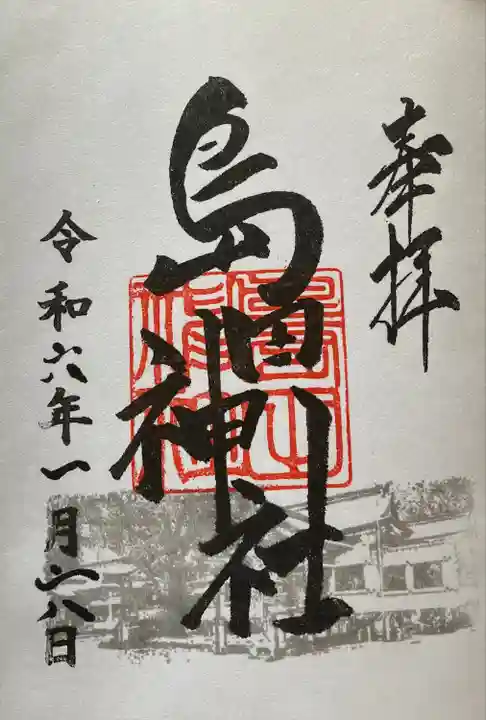 奉拝
島田神社
令和六年一月八日